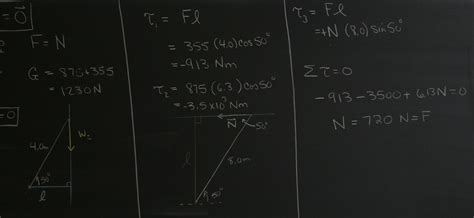 = 0⃗
F = N
G = 875+355
= 1230N
= 0
4.0m
W₂
50°
l
τ₁ = Fl
= 355(4.0)cos50°
= -913 Nm
τ₂ = 875(6.3)cos50°
= -3.5x10³ Nm
N
50°
l
8.0m
50°
τ₃ = Fl
= +N (8.0) sin50°
Στ=0
-913-3500+6.13N=0
N = 720 N = F